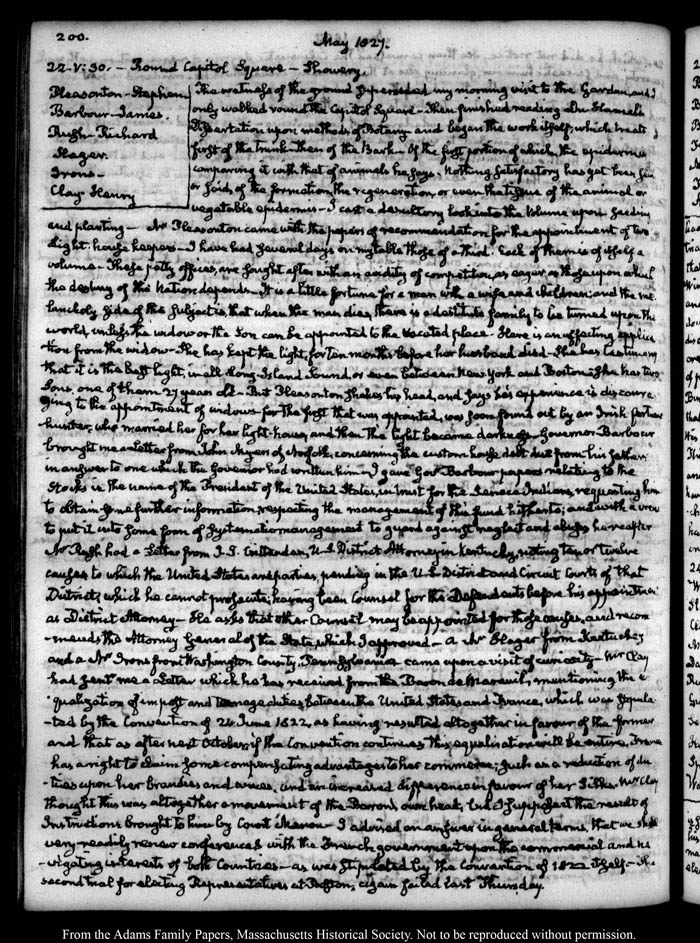 200.
May 1827.
22. V:30. — Round Capitol Square — Showery.
Pleasonton - Stephen
Barbour - James.
Rush - Richard
Slager.
Irons -
Clay Henry
The wetness of the ground superseded my morning visit to the Garden, and I
only walked round the Capitol Square — Then finished reading Du Hamel's
Dissertation upon methods of Botany and began the work itself; which treats
first of the trunk — then of the Bark — Of the first portion of which, the epidermis
comparing it with that of animals he says, nothing satisfactory has yet been seen
or said, of the formation, the regeneration, or even the tissue of the animal or
vegetable epidermis — I cast a desultory look into the Volume upon seeding
and planting — Mr Pleasonton came with the papers of recommendation for the appointment of two
Light-house keepers — I have had several days on my table those of a third. Each of them is of itself a
volume — These petty offices, are sought after with an avidity of competition, as eager as those upon which
the destiny of the Nation depends — It is a little fortune for a man with a wife and children; and the me-
lancholy side of the subject is, that when the man dies, there is a destitute family to be turned upon the
world, unless the widow or the Son can be appointed to the vacated place — Here is an affecting applica-
tion from the widow — She has kept the light, for ten months before her husband died — She has testimony
that it is the best light, in all Long-Island Sound, or even between New York and Boston — She has two
Sons, one of them 27 years old — But Pleasonton shakes his head, and says his experience is discoura-
ging to the appointment of widows — for the first that was appointed, was soon found out by an Irish fortune
hunter, who married her for her light-house, and then the light became darkness. Governor Barbour
brought me a Letter from John Myers of Norfolk, concerning the custom house debt due from his father;
in answer to one which the Governor had written him — I gave Govr Barbour papers relating to the
Stocks in the name of the President of the United States, in trust for the Seneca Indians, requesting him
to obtain some further information, respecting the management of this fund hitherto; and with a view
to put it into some form of systematic management to guard against neglect and abuses hereafter
Mr Rush had a Letter from J. J. Crittenden, U.S. District Attorney in Kentucky, noting ten or twelve
causes to which the United States are parties, pending in the U.S. District and Circuit Courts of that
District; which he cannot prosecute; having been Counsel for the Defendants before his appointment
as District Attorney — He asks that other Counsel may be appointed for those causes, and recom-
-mends the Attorney General of the State, which I approved — A Mr Slager from Kentucky
and a Mr Irons from Washington County, Pennsylvania came upon a visit of curiosity — Mr Clay
had sent me a Letter which he has received from the Baron de Mareuil, mentioning the e-
qualization of impost and tonnage duties, between the United States and France, which was stipula-
-ted by the Convention of 24 June 1822, as having resulted altogether in favour of the former
and that as after next October, if the Convention continues this equalization will be entire, France
has a right to claim some compensating advantages to her commerce; such as a reduction of du-
-ties upon her brandies and wines, and an increased difference in favour of her Silks. Mr Clay
thought this was altogether a movement of the Baron's own head, but I suppose it the result of
Instructions brought to him by Count Menou — I advised an answer in general terms, that we shall
very readily renew conferences with the French government upon the commercial and na-
-vigating interests of both Countries — as was stipulated by the Convention of 1822 itself — The
second trial for electing Representatives at Boston, again failed last Thursday
From the Adams Family Papers, Massachusetts Historical Society. Not to be reproduced without permission.